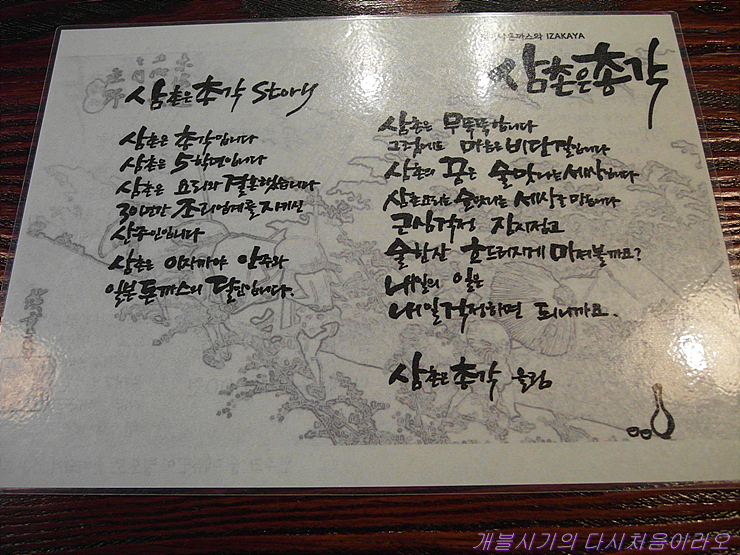 돈까스와 IZAKAYA
삼촌은총각
삼촌은 총각 Story
삼촌은 총각입니다
삼촌은 5학년입니다
삼촌은 요리와 결혼했습니다
30년간 조리업계를 지키신
산주인입니다
삼촌은 이자까야 안주와
일본 돈까스의 달인입니다.
삼촌은 무뚝뚝합니다
그럼에도 마음은 비단결입니다
삼촌의 꿈은 술맛나는세상입니다
삼촌요리는 술맛나는 세상을 만듭니다
근심걱정 잠시접고
술한잔 흐드러지게 마셔볼까요?
내일의 일은
내일걱정하면 되니까요.
삼촌은 총각 올림
개불시기의 다시처음이라오